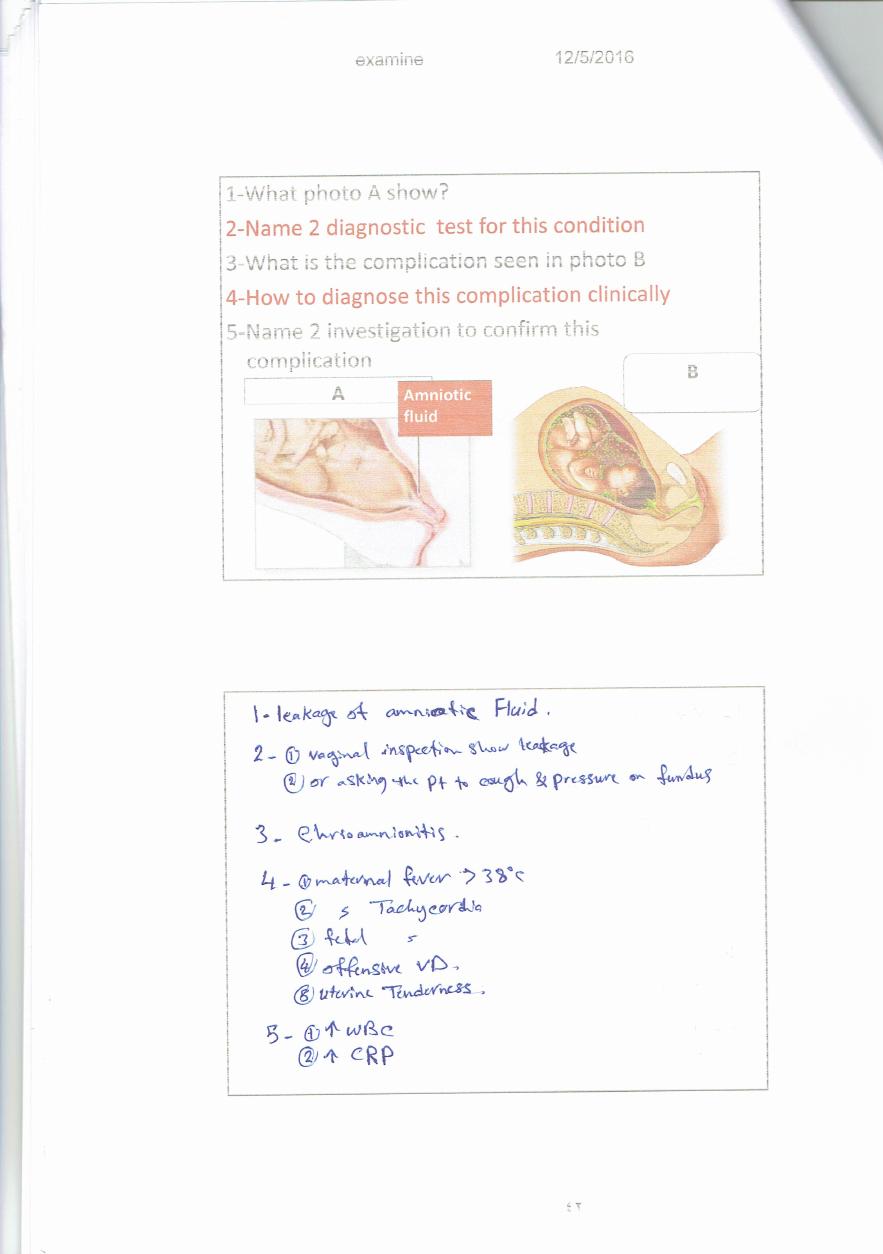 examine 12/5/2016
1-What photo A show?
2-Name 2 diagnostic test for this condition
3-What is the complication seen in photo B
4-How to diagnose this complication clinically
5-Name 2 investigation to confirm this
complication
A
Amniotic
fluid
B
1- leakage of amniotic Fluid.
2 - ① vaginal inspection show leakage
② or asking the pt to cough & pressure on fundus
3 - Chrioamnionitis.
4 - ① maternal fever > 38°c
② s Tachycardia
③ fetal s
④ offensive VD.
⑤ uterine Tenderness.
5 - ① ↑ WBC
② ↑ CRP
٤٢